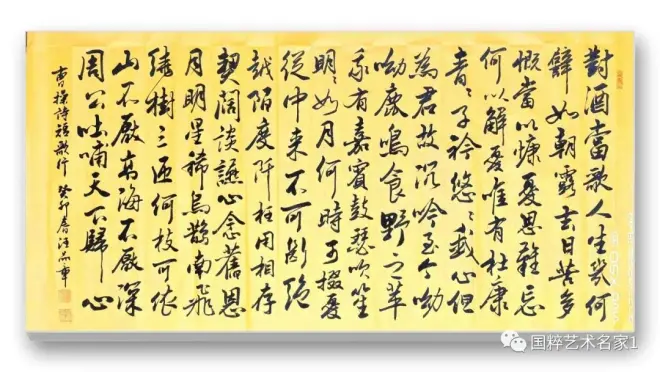 對酒當歌人生幾何
譬如朝露去日苦多
慨當以慷憂思難忘
何以解憂唯有杜康
青〻子衿悠〻我心但
為君故沉吟至今呦
呦鹿鳴食野之苹
我有嘉賓鼓瑟吹笙
明〻如月何時可掇憂
從中來不可斷絕
越陌度阡枉用相存
契闊談讌心念舊恩
月明星稀烏鵲南飛
繞樹三匝何枝可依
山不厭高海不厭深
周公吐哺天下歸心
曹操詩短歌行 癸卯春汪
国粹艺术名家1